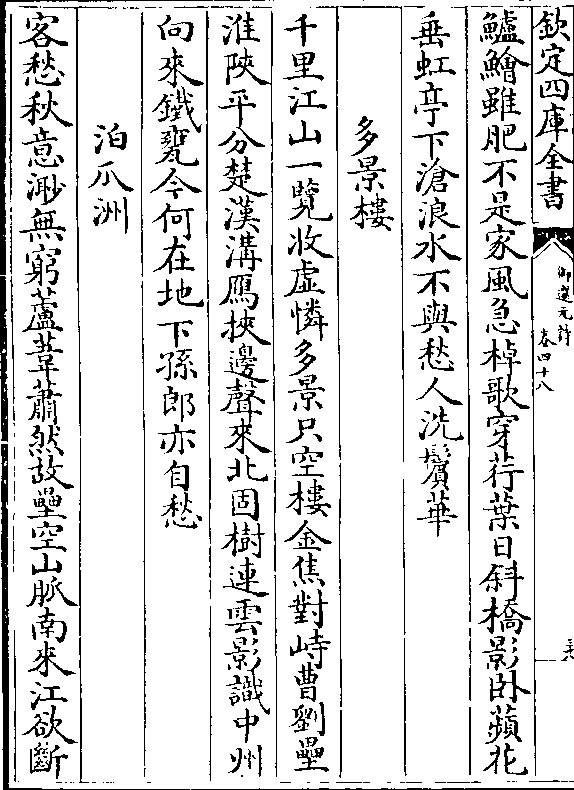 欽定四庫全書
御選元詩
卷四十八
鱸鱠雖肥不是家風急棹歌穿荇葉日斜橋影卧蘋花
垂虹亭下滄浪水不與愁人洗鬢華
多景樓
千里江山一覽收虛憐多景只空樓金焦對峙曹劉壘
淮陜平分楚漢溝鴈挾邊聲來北固樹連雲影識中州
向來鐵甕今何在地下孫郎亦自愁
泊爪洲
客愁秋意渺無窮蘆葦蕭然故壘空山脈南來江欲斷